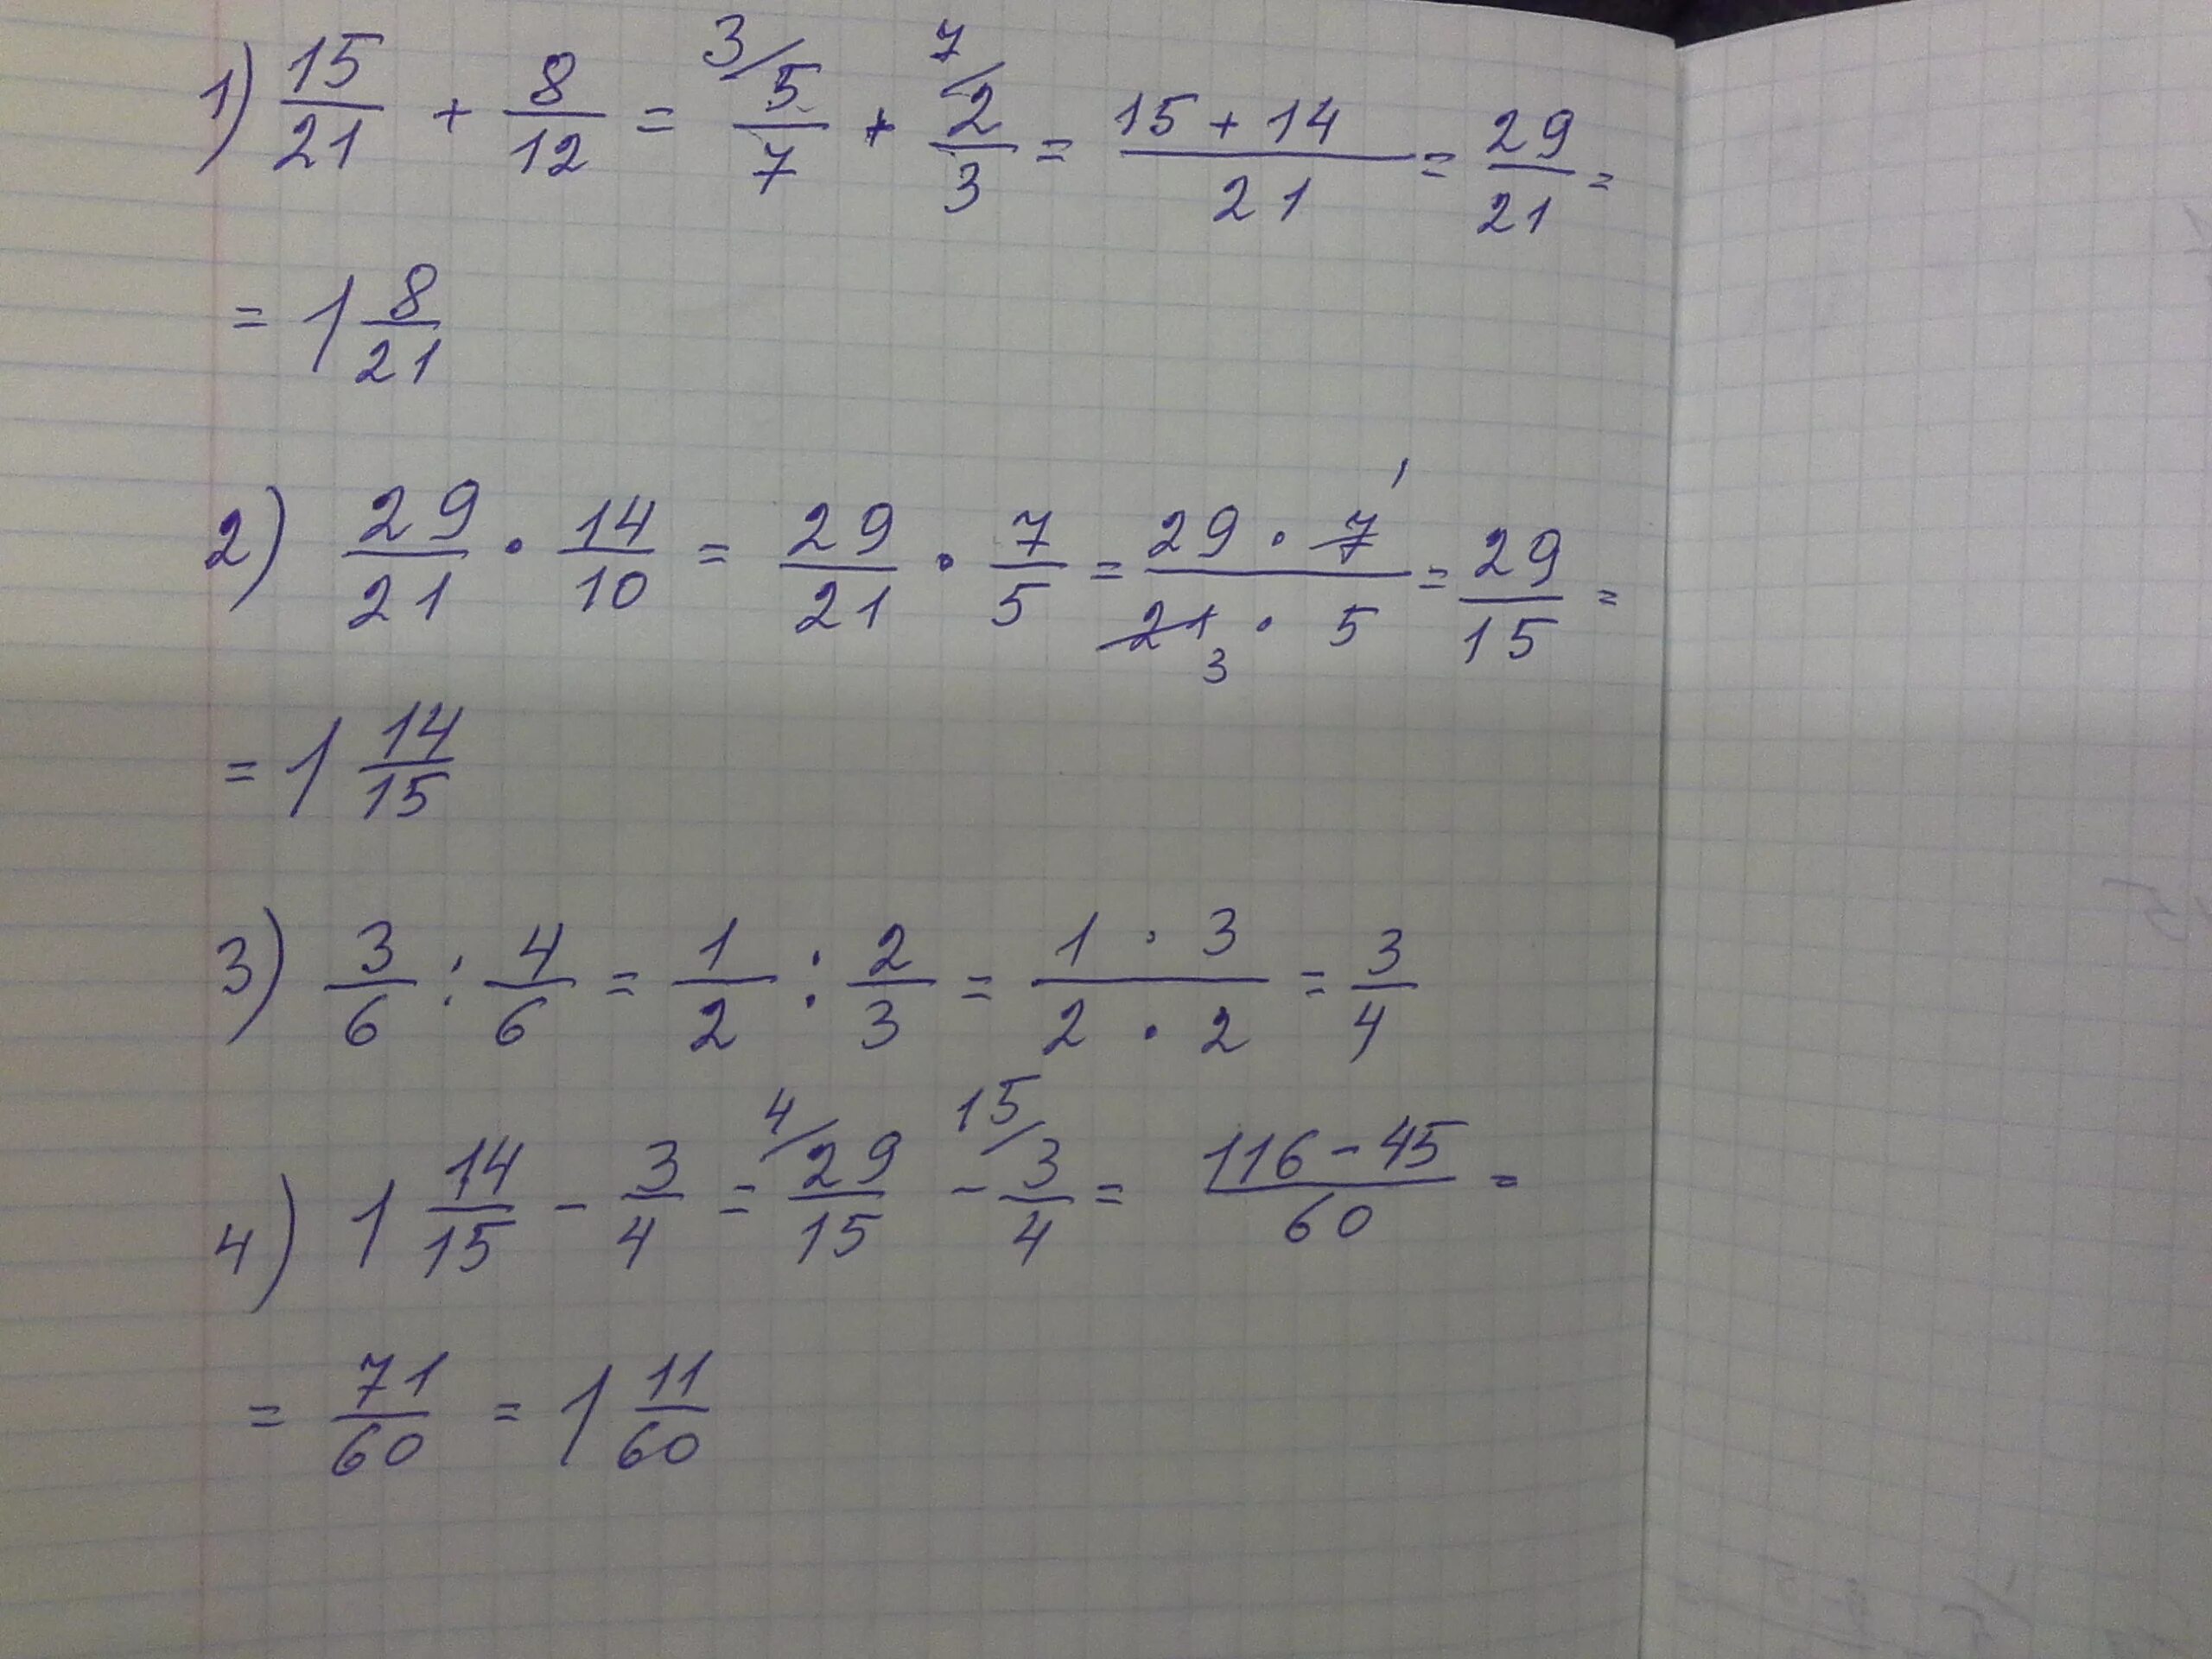 1) 15/21 + 8/12 = 3/ 5/7 + 7/ 2/3 = 15 + 14/21 = 29/21 =
= 1 8/21
2) 29/21 · 14/10 = 29/21 · 7/5 = 29 · 7 1/21 3 · 5 = 29/15 =
= 1 14/15
3) 3/6 : 4/6 = 1/2 : 2/3 = 1 · 3/2 · 2 = 3/4
4) 1 14/15 - 3/4 = 4/ 29/15 - 15/ 3/4 = 116 - 45/60 =
= 71/60 = 1 11/60